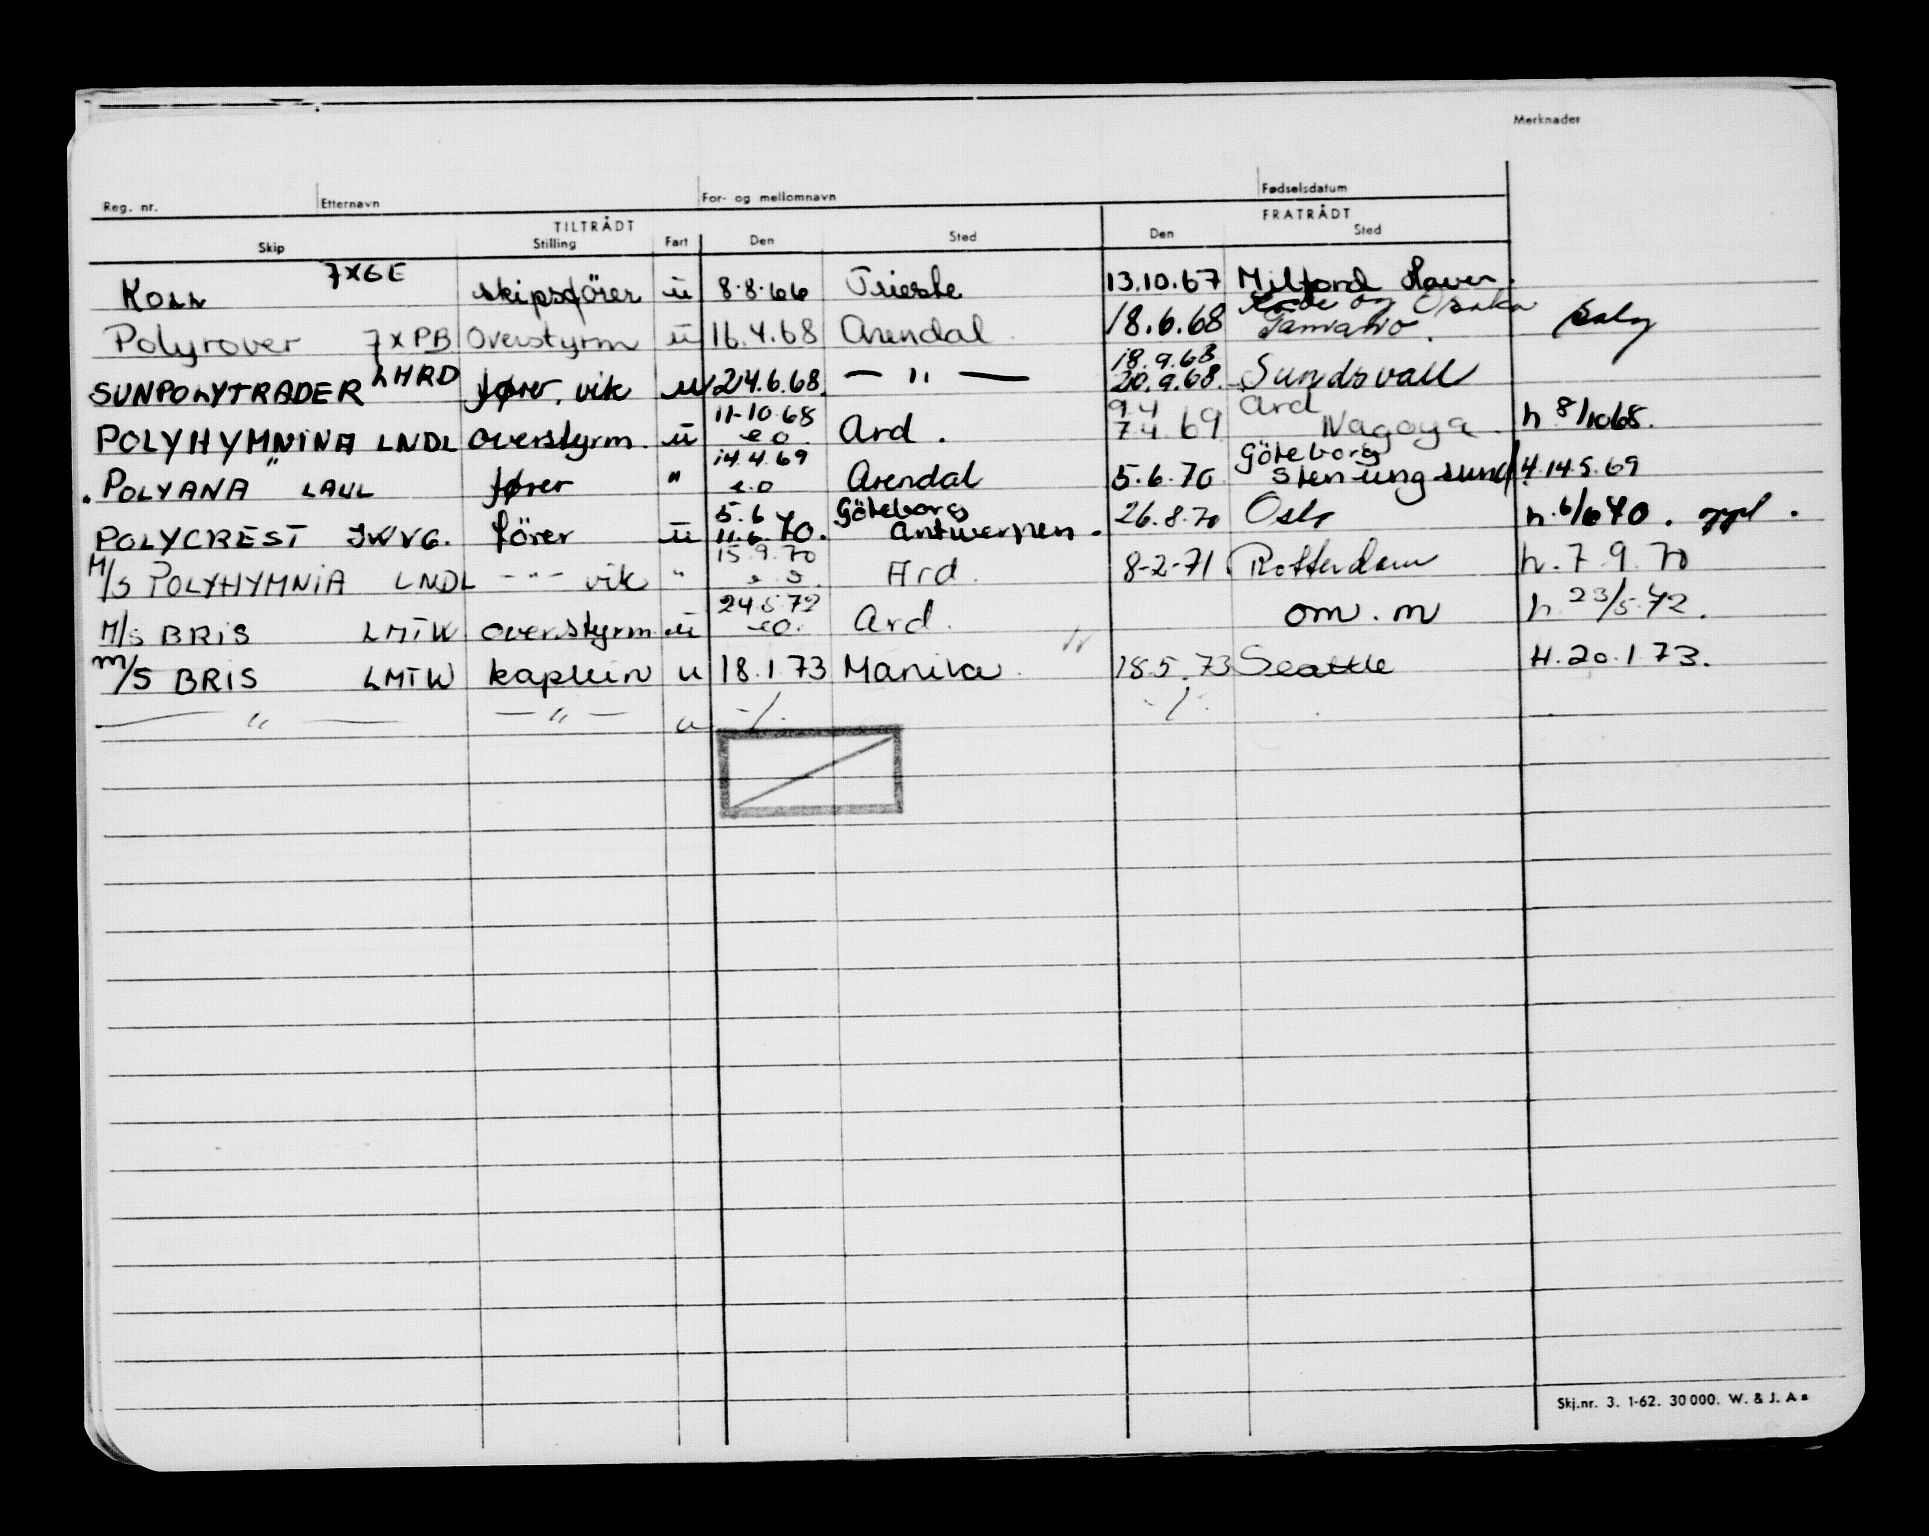 Merknader
Reg. nr. Etternavn For- og mellomnavn Fødselsdatum
TILTRÅDT FRATRÅDT
Skip Stilling Fart Den Sted Den Sted
KOLL 7XGE skipsfører u 8.8.66 Trieste 13.10.67 Milford Haven.
Kobe og Osaka
Polyrover 7XPB Overstyrm u 16.4.68 Arendal 18.6.68 Tamano. salg
18.9.68
SUNPOLYTRADER LHRD fører, vik u 24.6.68. — " — 20.9.68. Sundsvall
11-10.68 9.4 Ard
POLYHYMNINA LNDL overstyrm. u e.o. Ard. 7.4.69 Nagoya. h 8/1068.
14.4.69 Göteborg
. POLYANA " LAUL fører " e.o Arendal 5.6.70 Stenungsund 14.5.69
5.6 Göteborg
POLYCREST JWVG. fører u 11.6.70. Antwerpen. 26.8.70 Oslo h.6/670. oppl.
15.9.70
M/S POLYHYMNIA LNDL -"- vik " e.o. Ard. 8-2-71. Rotterdam h. 7.9.70
24.5.72
M/S BRIS LMTW overstyrm. u e.o. Ard. om. m h. 23/5.72.
m/S BRIS LMTW kaptein u 18.1.73 Manila. 18.5.73 Seattle H.20.1.73.
— " — — " — u -/. -/.
Skj.nr. 3. 1-62. 30 000. W. & J. A s